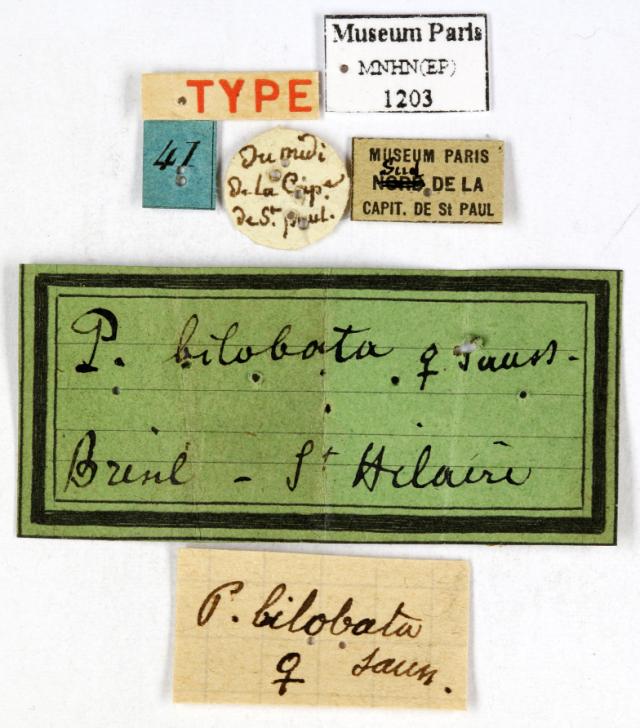 Museum Paris
MNHN(EP)
1203
TYPE
41
Du midi
De La Cap.e
de St. paul.
MUSEUM PARIS
Sud
NORD. DE LA
CAPIT. DE St PAUL
P. bilobata ♀ Sauss.
Brésil - St Hilaire
P. bilobata
♀ Sauss.